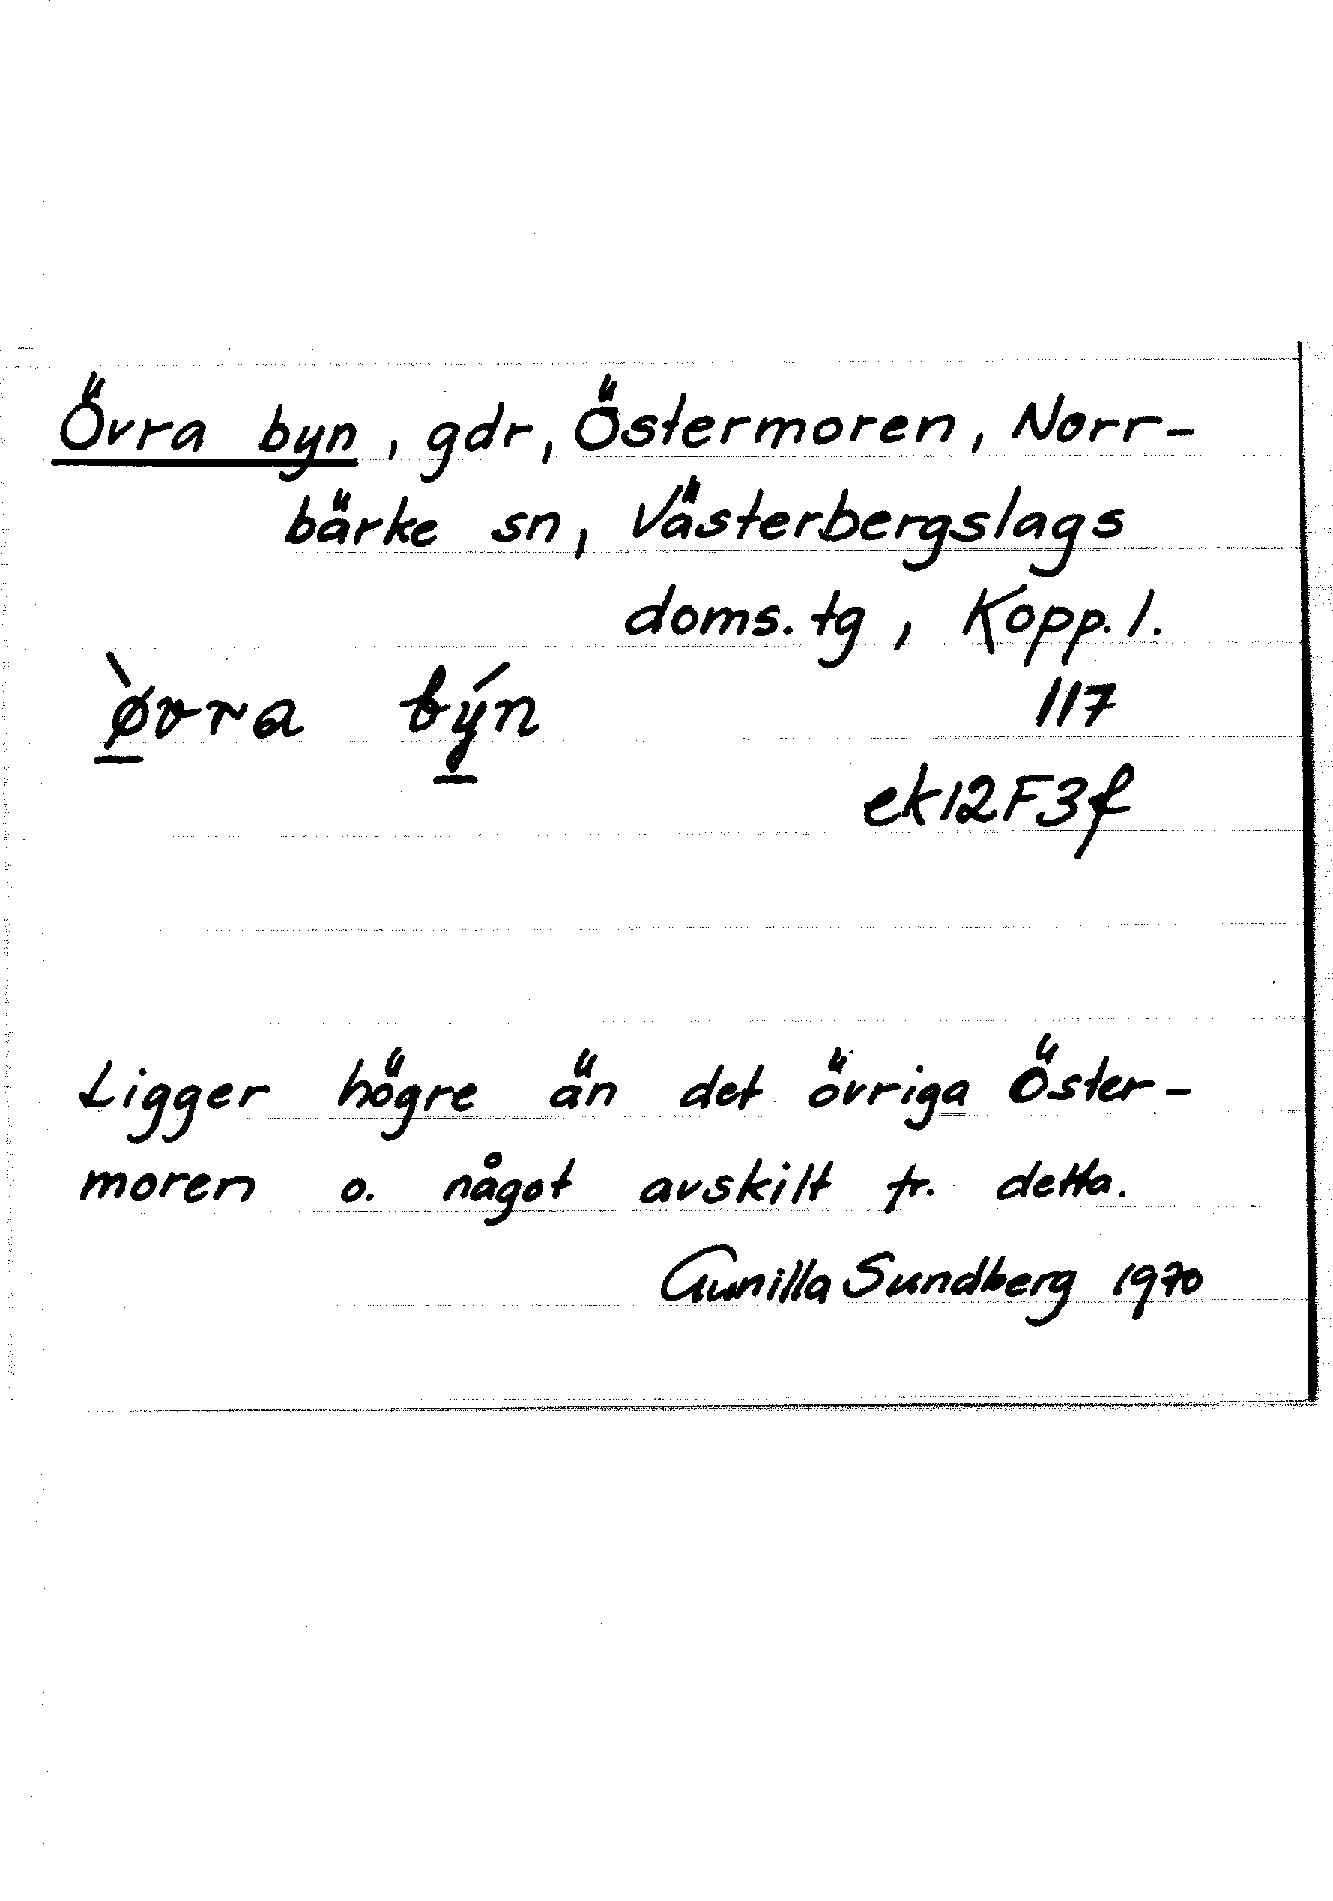 Övra byn, gdr, Östermoren, Norr-
bärke sn, Västerbergslags
doms. tg, Kopp. l.
ø̱̀vra bý̱n 117
ek12F3f
Ligger högre än det övriga Öster-
moren o. något avskilt fr. detta.
Gunilla Sundberg 1970